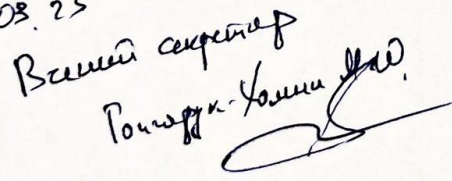 09.23
Вчений секретар
Гончарук-Хомин М.Ю.